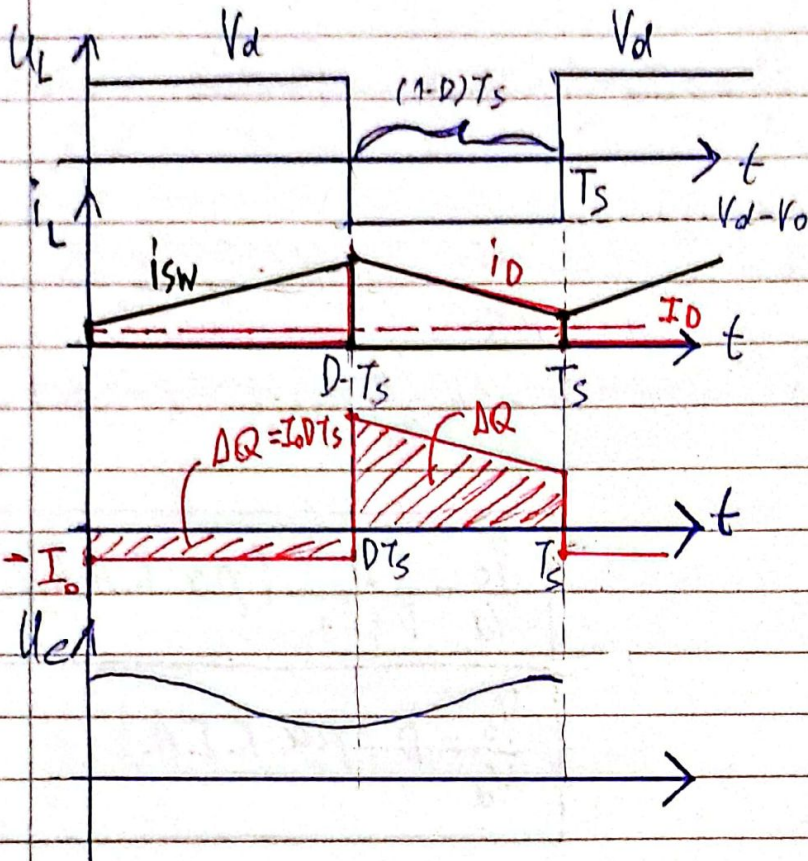 Vd Vd
uL
(1-D)Ts
t
Ts
iL Vd-Vo
isw iD
ID
t
D·Ts Ts
ΔQ=IoDTs ΔQ
t
-Io DTs Ts
uc